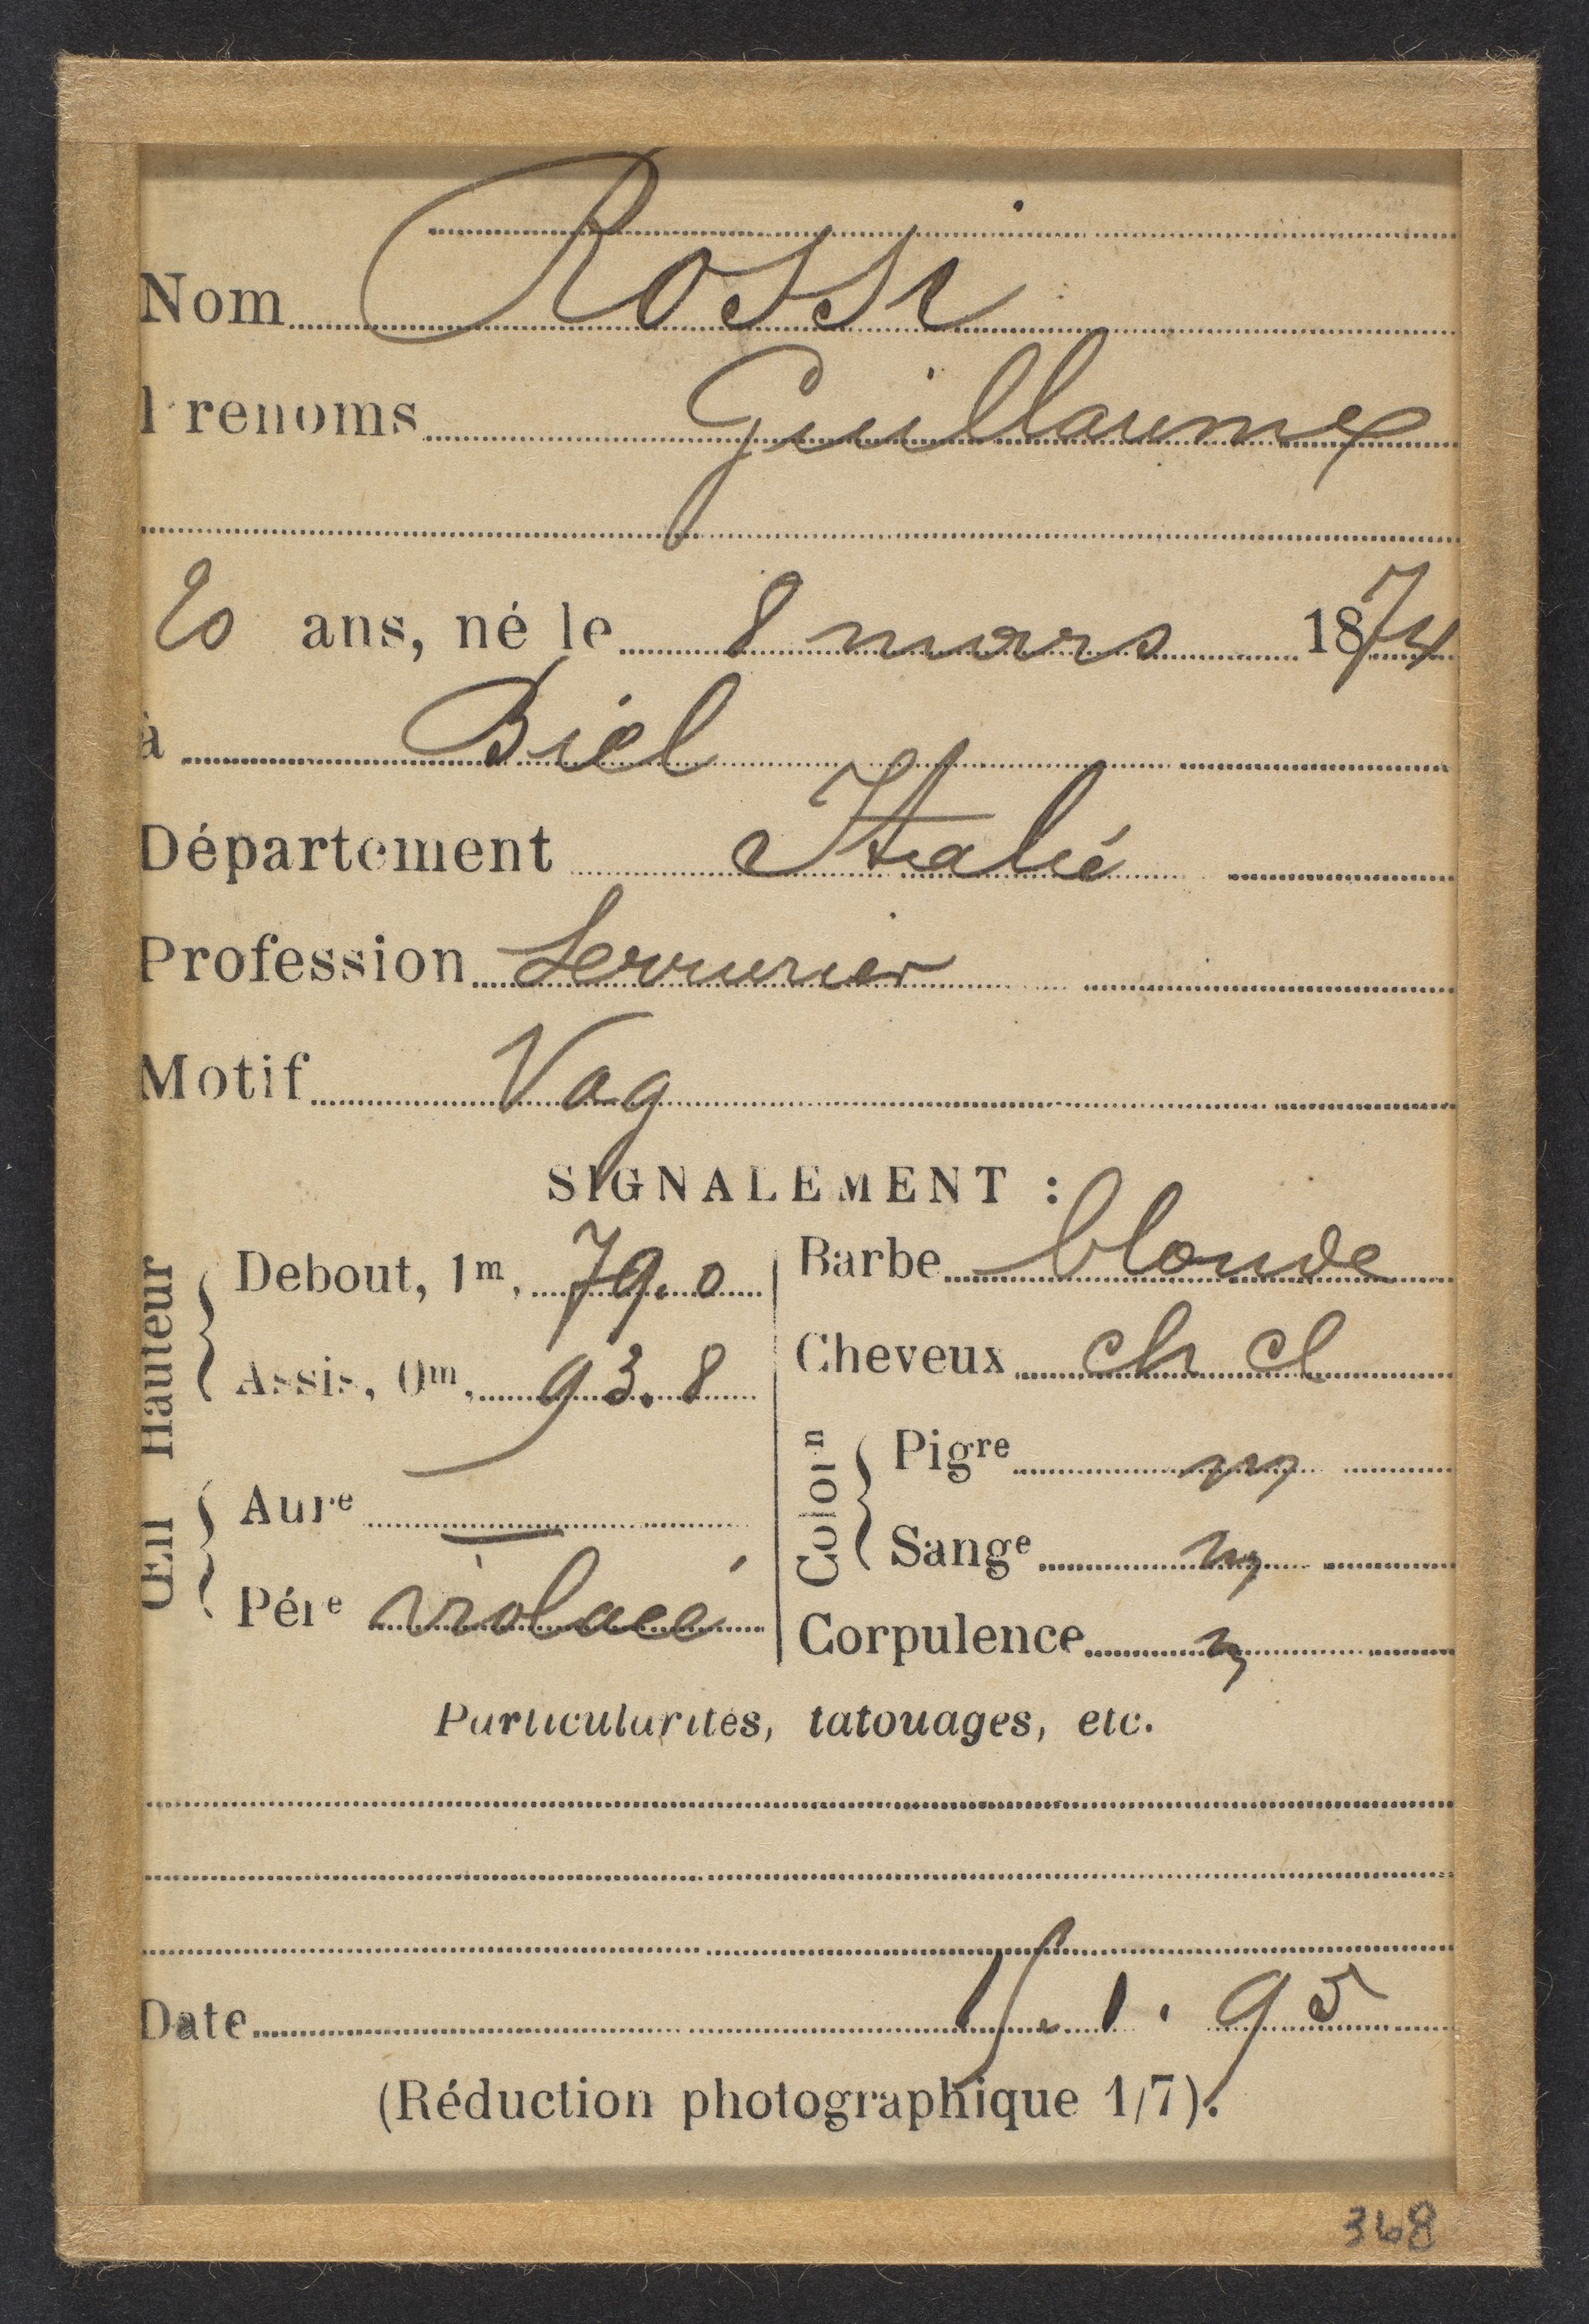 Nom Rossi
Prénoms Guillaume
20 ans, né le 8 mars 1874
à Biel
Département Italie
Profession Serrurier
Motif Vag
SIGNALEMENT :
Hauteur
Debout, 1m, 79.0
Assis, 0m, 93.8
Œil
Aure —
Pére violacé
Barbe blonde
Cheveux ch cl
Colorn
Pigre m
Sange m
Corpulence m
Particularités, tatouages, etc.
Date 1.95
(Réduction photographique 1/7).
368